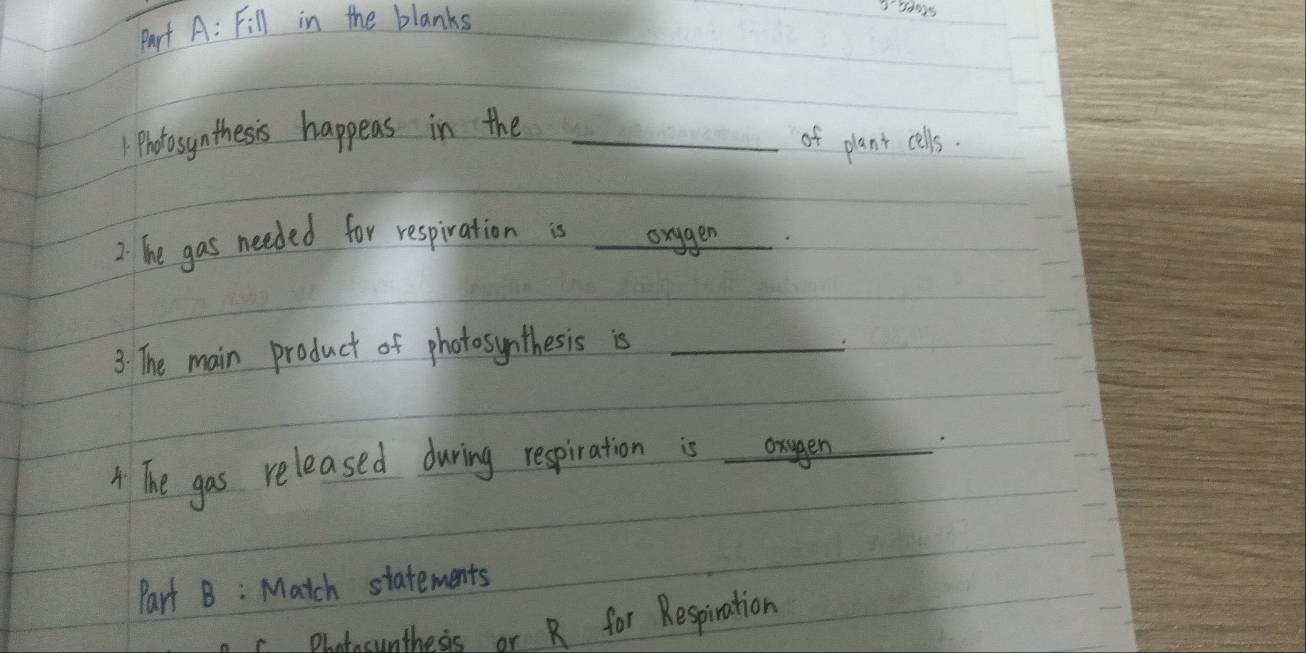 Part A: Fill in the blanks
1. Photosynthesis happens in the __________ of plant cells.
2. The gas needed for respiration is oxygen.
3. The main product of photosynthesis is __________.
4. The gas released during respiration is oxygen.
Part B: Match statements
Photosynthesis or R for Respiration